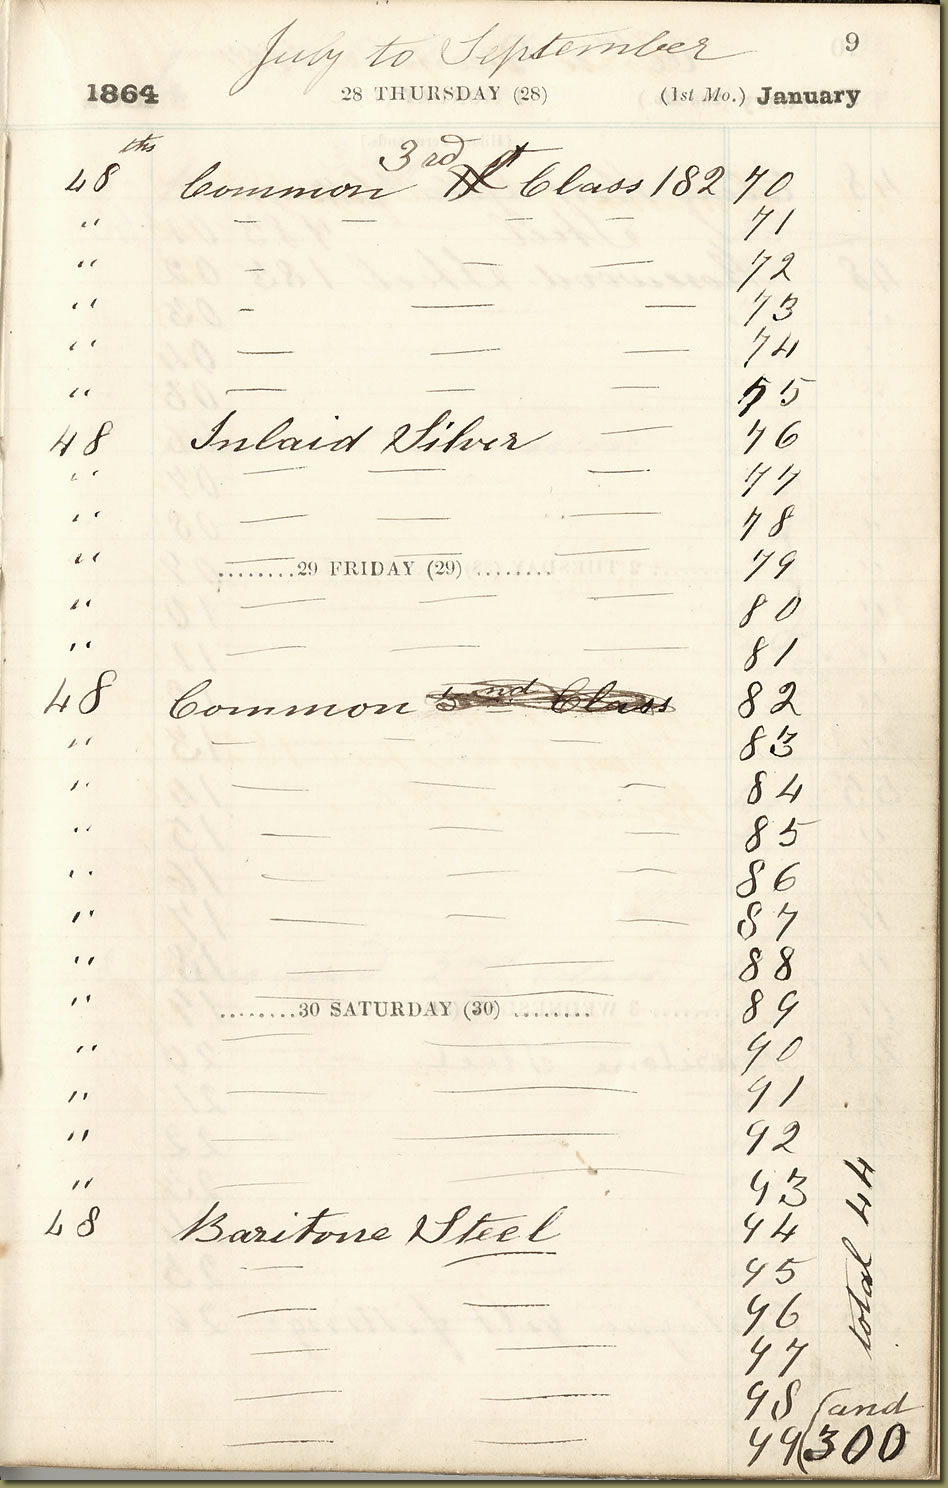 July to September 9
1864 28 THURSDAY (28) (1st Mo.) January
48 ths Common 3rd Class 182 70
" — — — — 71
" — — — 72
" — — — 73
" — — — 74
" — — — 75
48 Inlaid Silver — 76
" — — — 77
" — — — 78
" — — — 79
........29 FRIDAY (29) ........
" — — — 80
" — — — 81
48 Common 2nd Class 82
" — — — 83
" — — — 84
" — — — 85
" — — — 86
" — — — 87
" — — 88
" — — 89
........30 SATURDAY (30) ........
" — — 90
" — — 91
" — — 92
" — — 93
48 Baritone Steel 94
— 95
— — 96
— — 97
— — 98 (and
— — 99 (300
total 44